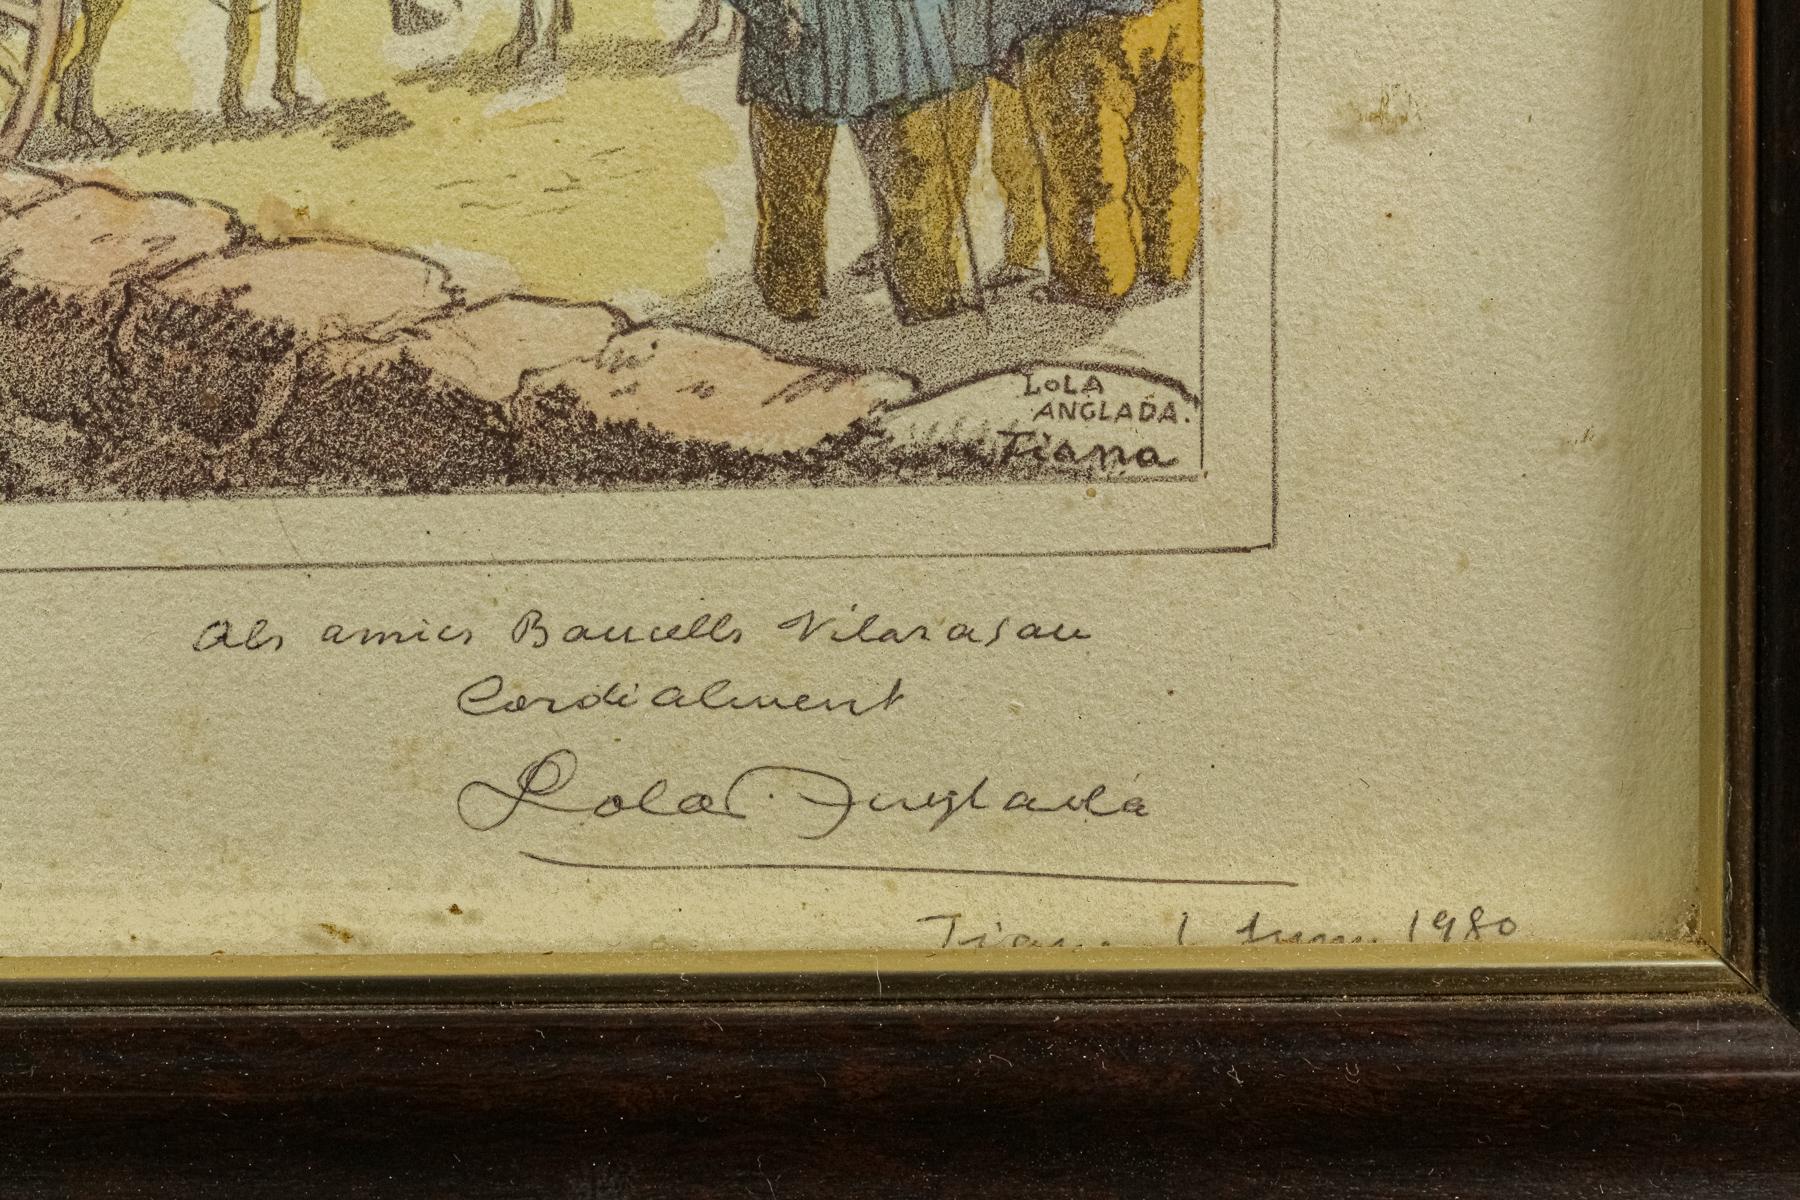 LOLA
ANGLADA.
Tiana
Als amics Baucells Vilarasau
Cordialment
Lola Anglada
Tiana 1 Juny 1980